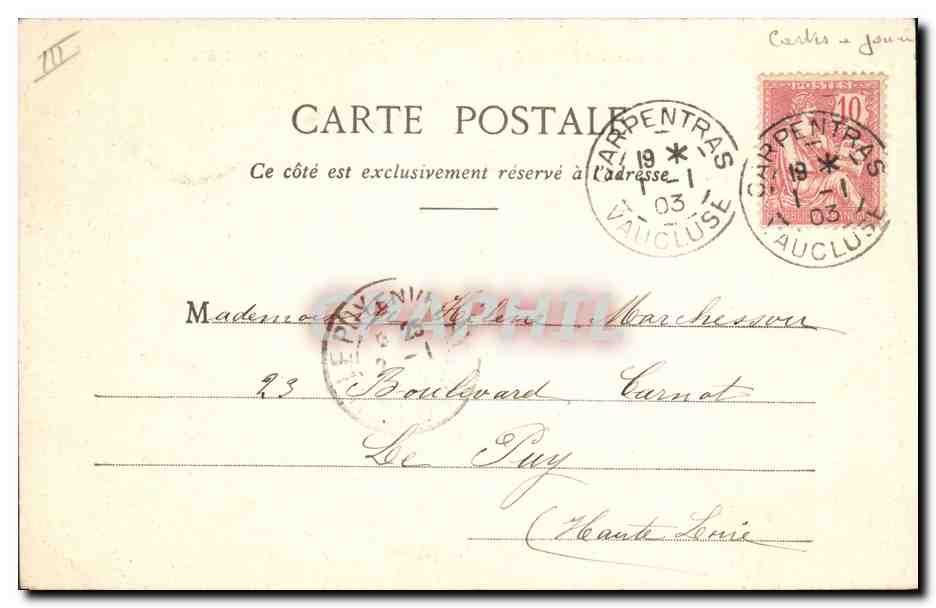 III
POSTES
10
CARTE POSTALE
Ce côté est exclusivement réservé à l'adresse
CARPENTRAS
19 *
1 - 1
03
VAUCLUSE
CARPENTRAS
19 *
1 - 1
03
VAUCLUSE
Mademoiselle Hélène Marchessou
23 Boulevard Carnot
Le Puy
(Haute Loire
LE PUY EN V
25
-1